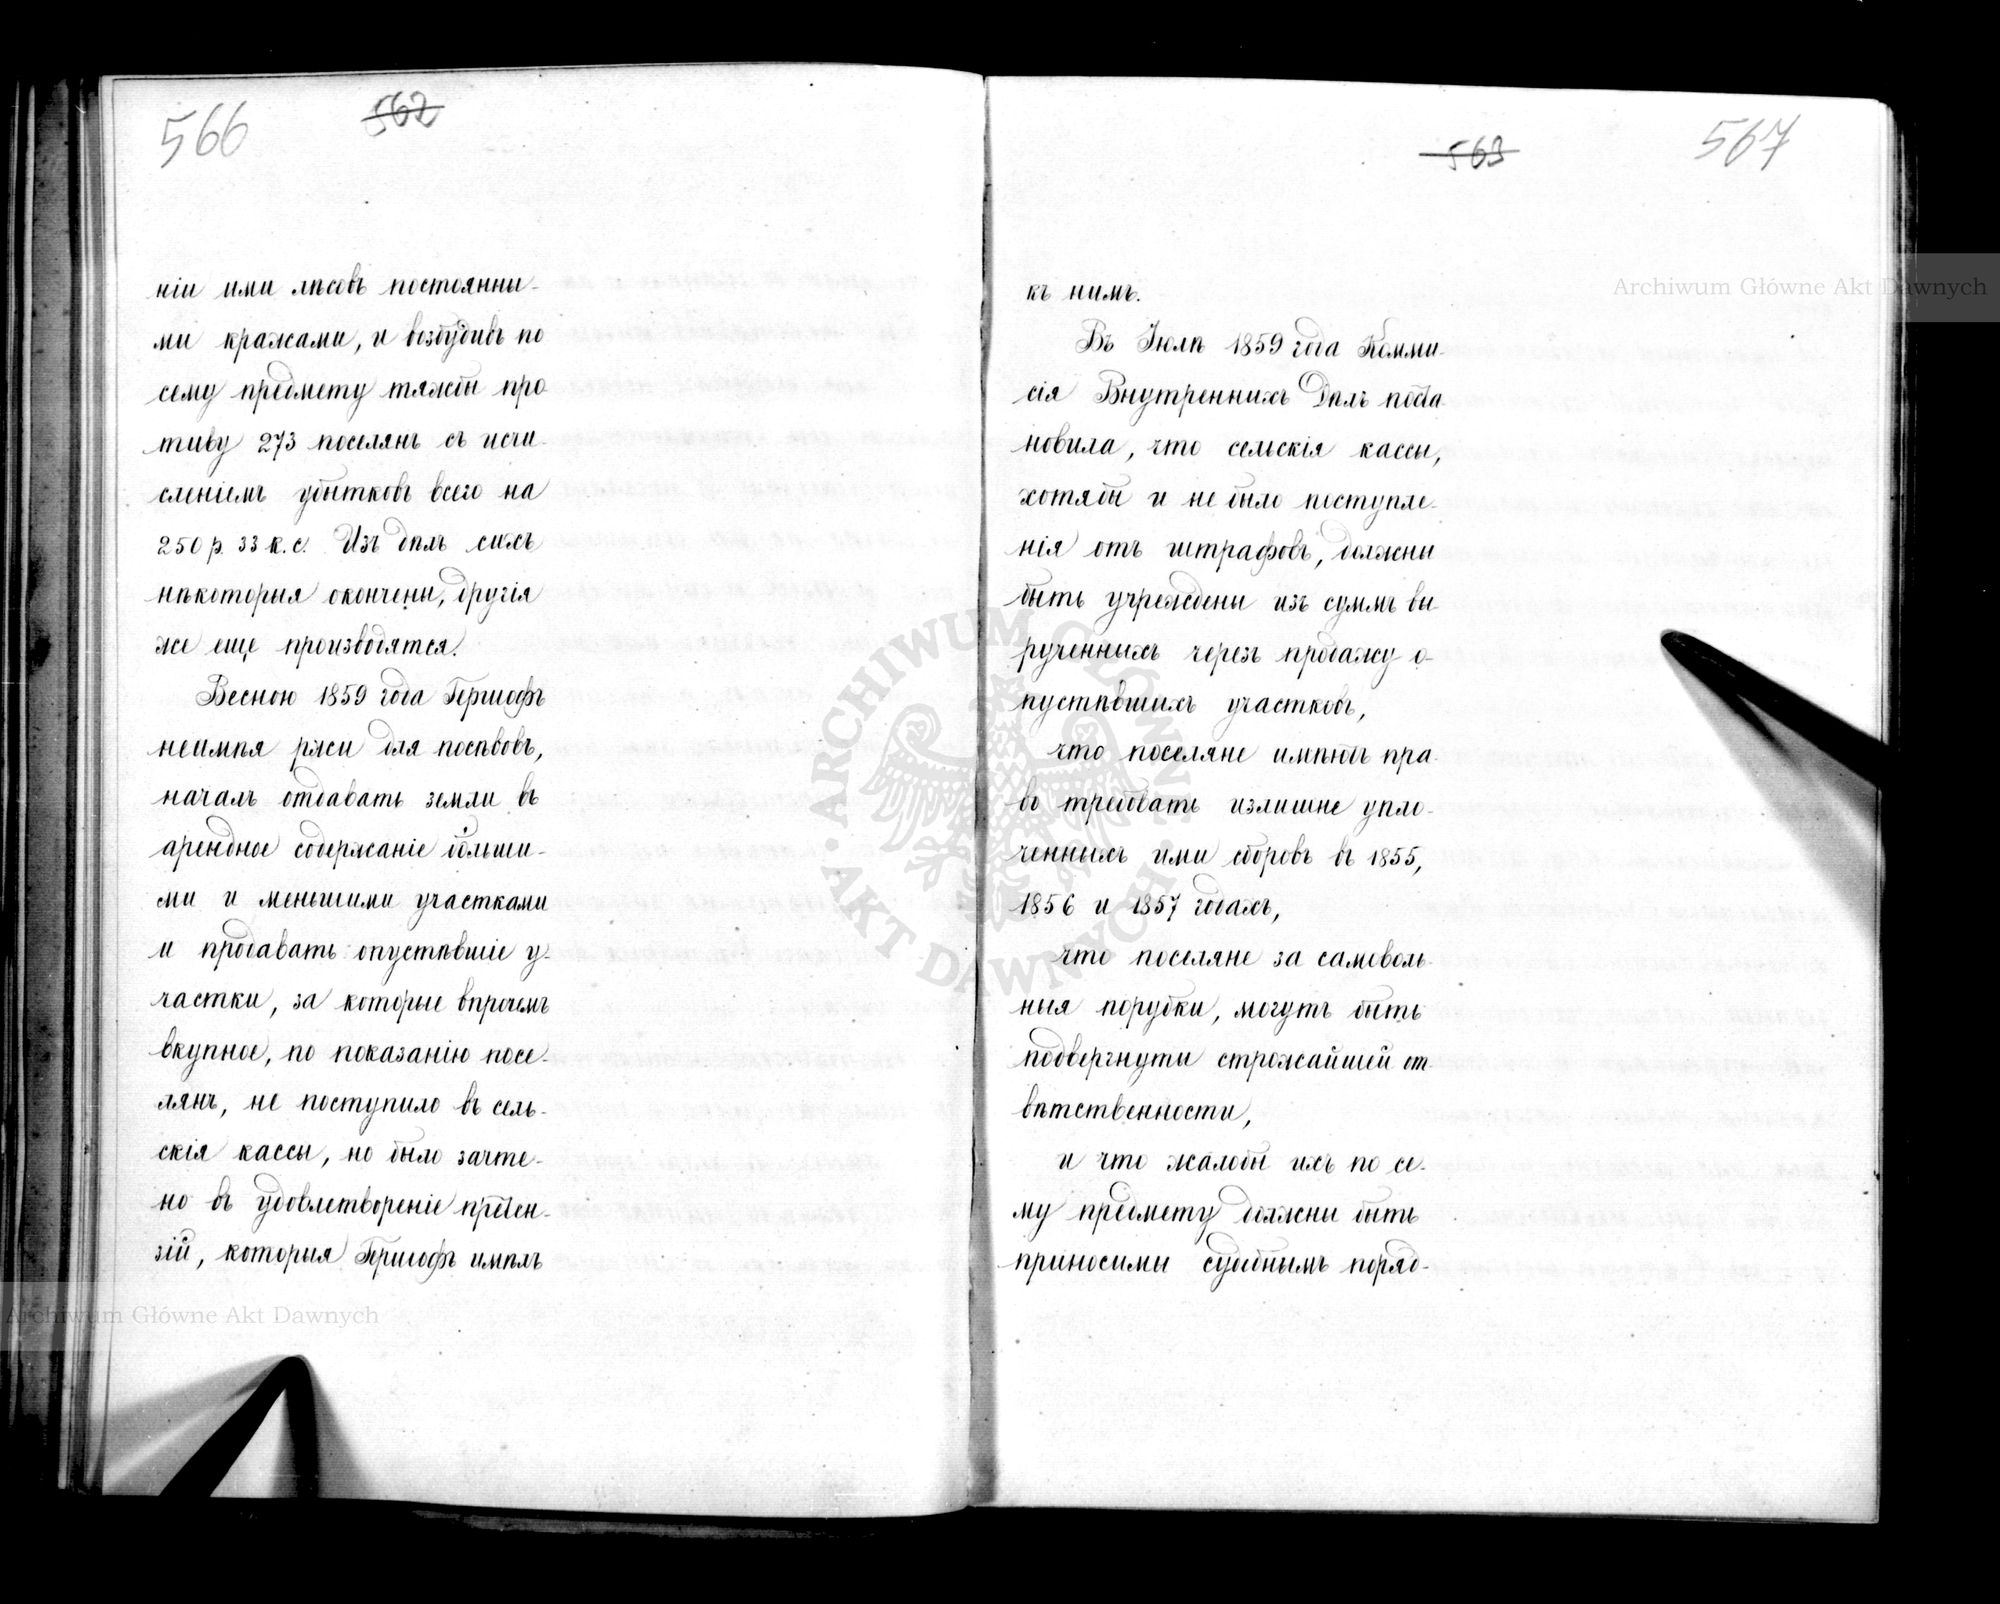 566
562
ніи ими лѣсовъ постоянны-
ми кражами, и возбудивъ по
сему предмету тяжбы про
тиву 273 поселянъ съ исчи-
сленіемъ убытковъ всего на
250 р. 33 к. с. Изъ дѣлъ сихъ
нѣкоторыя окончены, другія
же еще производятся.
Весною 1859 года Гершофъ
неимѣя ржи для посѣвовъ,
началъ отдавать земли въ
арендное содержаніе больши-
ми и меньшими участками
и продавать опустѣвшіе у-
частки, за которые впрочемъ
вкупное, по показанію посе-
лянъ, не поступило въ сель-
скія кассы, но было зачте-
но въ удовлетвореніе претен-
зій, которыя Гершофъ имѣлъ
563
567
къ нимъ.
Въ Іюлѣ 1859 года Комми-
сія Внутреннихъ Дѣлъ поста
новила, что сельскія кассы,
хотябы и не было поступле-
нія отъ штрафовъ, должны
быть учреждены изъ суммъ вы
рученныхъ черезъ продажу о-
пустѣвшихъ участковъ,
что поселяне имѣютъ пра-
во требовать излишне упло-
ченныхъ ими сборовъ въ 1855,
1856 и 1857 годахъ,
что поселяне за самоволь-
ныя порубки, могутъ быть
подвергнуты строжайшей от-
вѣтственности,
и что жалобы ихъ по се-
му предмету должны быть
приносимы судебнымъ поряд-
Archiwum Główne Akt Dawnych
Archiwum Główne Akt Dawnych
ARCHIWUM GŁÓWNE AKT DAWNYCH